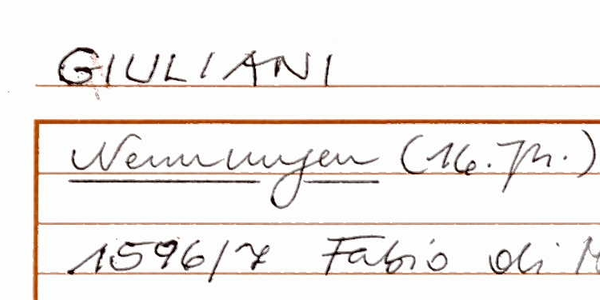 GIULIANI
Nennungen (16. Jh.)
1596/7 Fabio di M